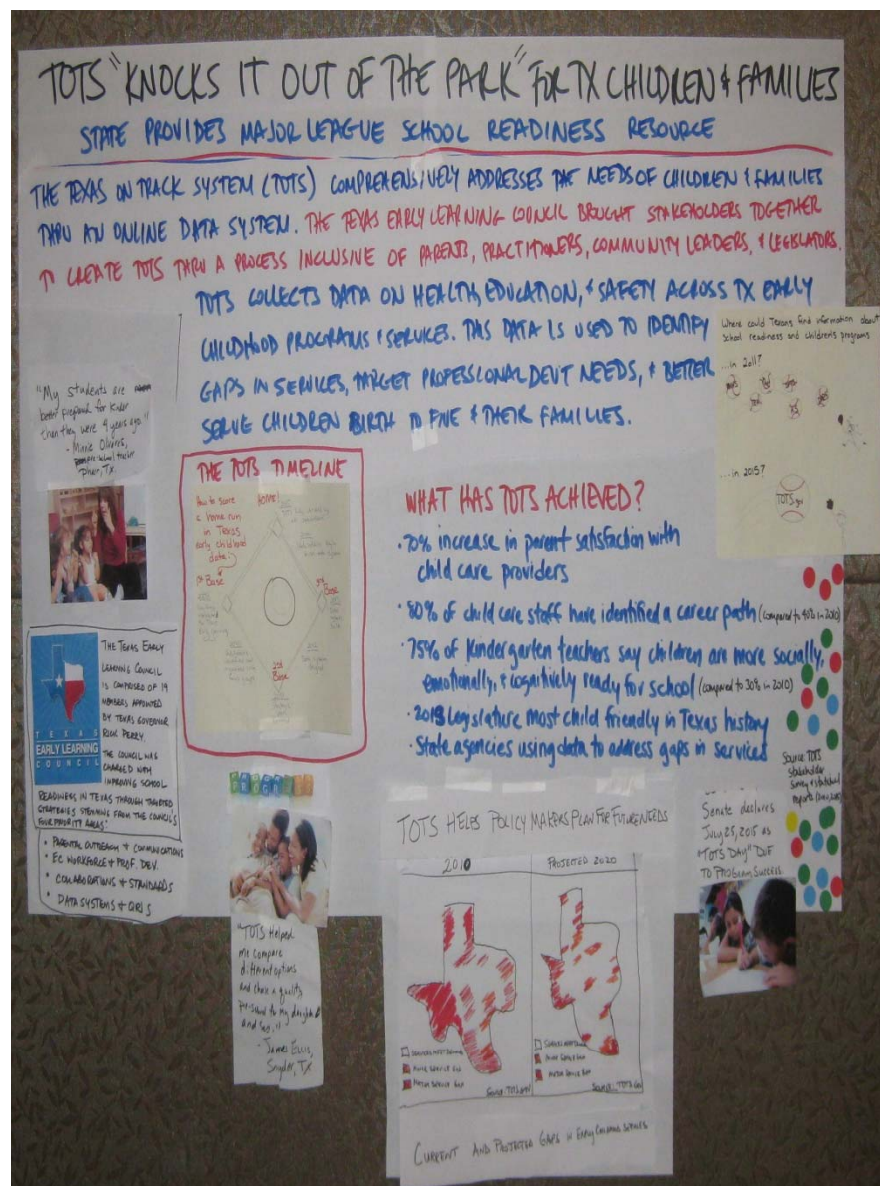 TOTS "KNOCKS IT OUT OF THE PARK" FOR TX CHILDREN & FAMILIES
STATE PROVIDES MAJOR LEAGUE SCHOOL READINESS RESOURCE
THE TEXAS ON TRACK SYSTEM (TOTS) COMPREHENSIVELY ADDRESSES THE NEEDS OF CHILDREN & FAMILIES
THRU AN ONLINE DATA SYSTEM. THE TEXAS EARLY LEARNING COUNCIL BROUGHT STAKEHOLDERS TOGETHER
TO CREATE TOTS THRU A PROCESS INCLUSIVE OF PARENTS, PRACTITIONERS, COMMUNITY LEADERS, & LEGISLATORS.
TOTS COLLECTS DATA ON HEALTH, EDUCATION, & SAFETY ACROSS TX EARLY
CHILDHOOD PROGRAMS & SERVICES. THIS DATA IS USED TO IDENTIFY
GAPS IN SERVICES, TARGET PROFESSIONAL DEVT NEEDS, & BETTER
SERVE CHILDREN BIRTH TO FIVE & THEIR FAMILIES.
Where could Texans find information about
school readiness and children's programs
...in 2011?
...in 2015?
TOTS.gov
"My students are
better prepared for kinder
than they were 4 years ago"
- Minnie Olivares,
pre-school teacher
Pharr, Tx.
THE TOTS TIMELINE
How to score
a home run
in Texas
early childhood
data!
HOME!
1st Base
2nd
Base
3rd
Base
WHAT HAS TOTS ACHIEVED?
• 70% increase in parent satisfaction with
child care providers
• 80% of child care staff have identified a career path (compared to 40% in 2010)
• 75% of Kindergarten teachers say children are more socially,
emotionally, & cognitively ready for school (compared to 30% in 2010)
• 2013 Legislature most child friendly in Texas history
• State agencies using data to address gaps in services
Source TOTS
Stakeholder
Survey & statewide
reports
TEXAS
EARLY LEARNING
COUNCIL
THE TEXAS EARLY
LEARNING COUNCIL
IS COMPRISED OF 19
MEMBERS APPOINTED
BY TEXAS GOVERNOR
RICK PERRY.
THE COUNCIL WAS
CHARGED WITH
IMPROVING SCHOOL
READINESS IN TEXAS THROUGH TARGETED
STRATEGIES STEMMING FROM THE COUNCIL'S
FOUR PRIORITY AREAS:
• PARENTAL OUTREACH & COMMUNICATIONS
• EC WORKFORCE & PROF. DEV.
• COLLABORATIONS & STANDARDS
• DATA SYSTEMS & QRIS
PROGRESS
"TOTS Helped
me compare
different options
and chose a quality
pre-school for my daughter
and son."
- James Ellis,
Snyder, TX
TOTS HELPS POLICY MAKERS PLAN FOR FUTURE NEEDS
2010
PROJECTED 2020
SERVICES MEET DEMAND
MINOR SERVICE GAP
MAJOR SERVICE GAP
Source: TOTS.gov
SERVICES MEET DEMAND
MINOR SERVICE GAP
MAJOR SERVICE GAP
Source: TOTS.gov
CURRENT AND PROJECTED GAPS IN EARLY CHILDHOOD SERVICES
Senate declares
July 25, 2015 as
"TOTS DAY" DUE
TO PROGRAM SUCCESS